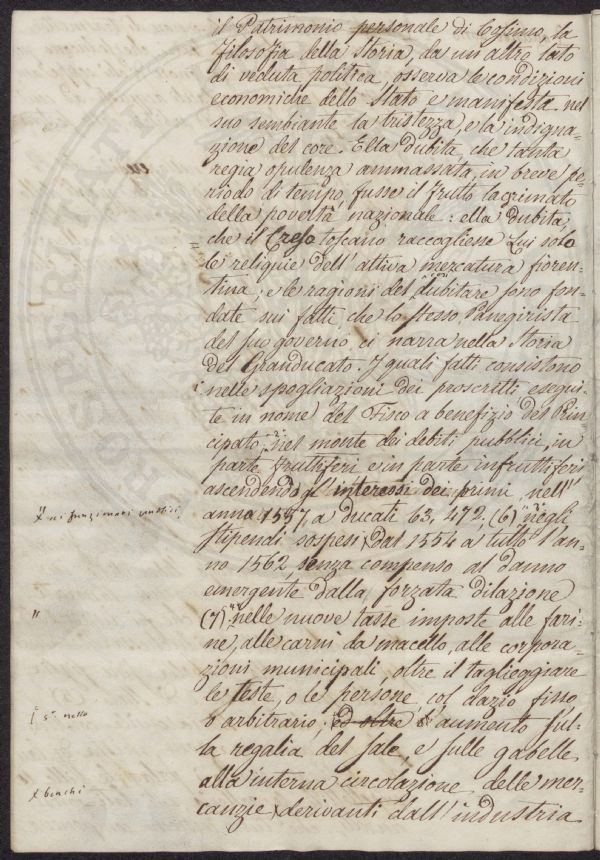 il Patrimonio personale di Cosimo, la
filosofia della storia, da un altro lato
di veduta politica, osserva le condizioni
economiche dello Stato e manifesta nel
suo sembiante la tristezza, e la indigna-
zione del core. Ella dubita, che tanta
regia opulenza ammassata, in breve pe-
riodo di tempo, fusse il frutto lacrimato
della povertà nazionale: ella dubita,
che il Creso toscano raccogliesse Lui solo
le reliquie dell'attiva mercatura fioren-
tina; e le ragioni del dubitare sono fon-
date sui fatti che lo stesso Panegirista
del suo governo ci narra nella Storia
del Granducato. I quali fatti consistono
nelle spogliazioni dei proscritti esegui-
te in nome del Fisco a benefizio del Prin-
cipato; nel monte dei debiti pubblici, in
parte fruttiferi e in parte infruttiferi
ascendendo gl'interessi dei primi, nell'
anno 1557, a ducati 63,472. (6) negli
stipendi sospesi dal 1554 a tutto l'an-
no 1562, senza compenso al danno
emergente dalla forzata dilazione
(7) nelle nuove tasse imposte alle fari-
ne, alle carni da macello, alle corpora-
zioni municipali, oltre il taglieggiare
le teste, o le persone, col dazio fisso
o arbitrario; ed oltre l'aumento sul-
la regalia del sale, e sulle gabelle
alla interna circolazione delle mer-
canzie derivanti dall'industria
x ai funzionari
nello
x benchi